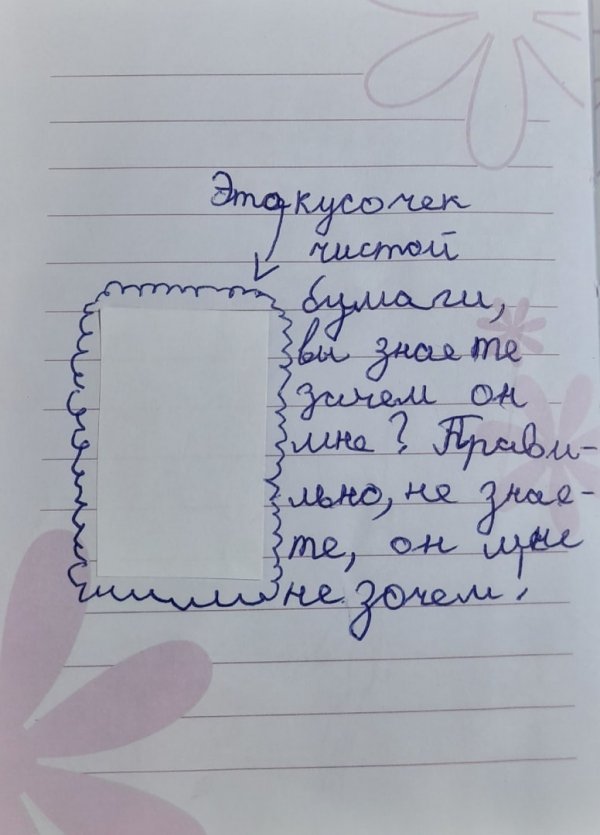 Это кусочек
чистой
бумаги,
вы знаете
зачем он
мне? Прави-
льно, не знае-
те, он мне
не зочем!